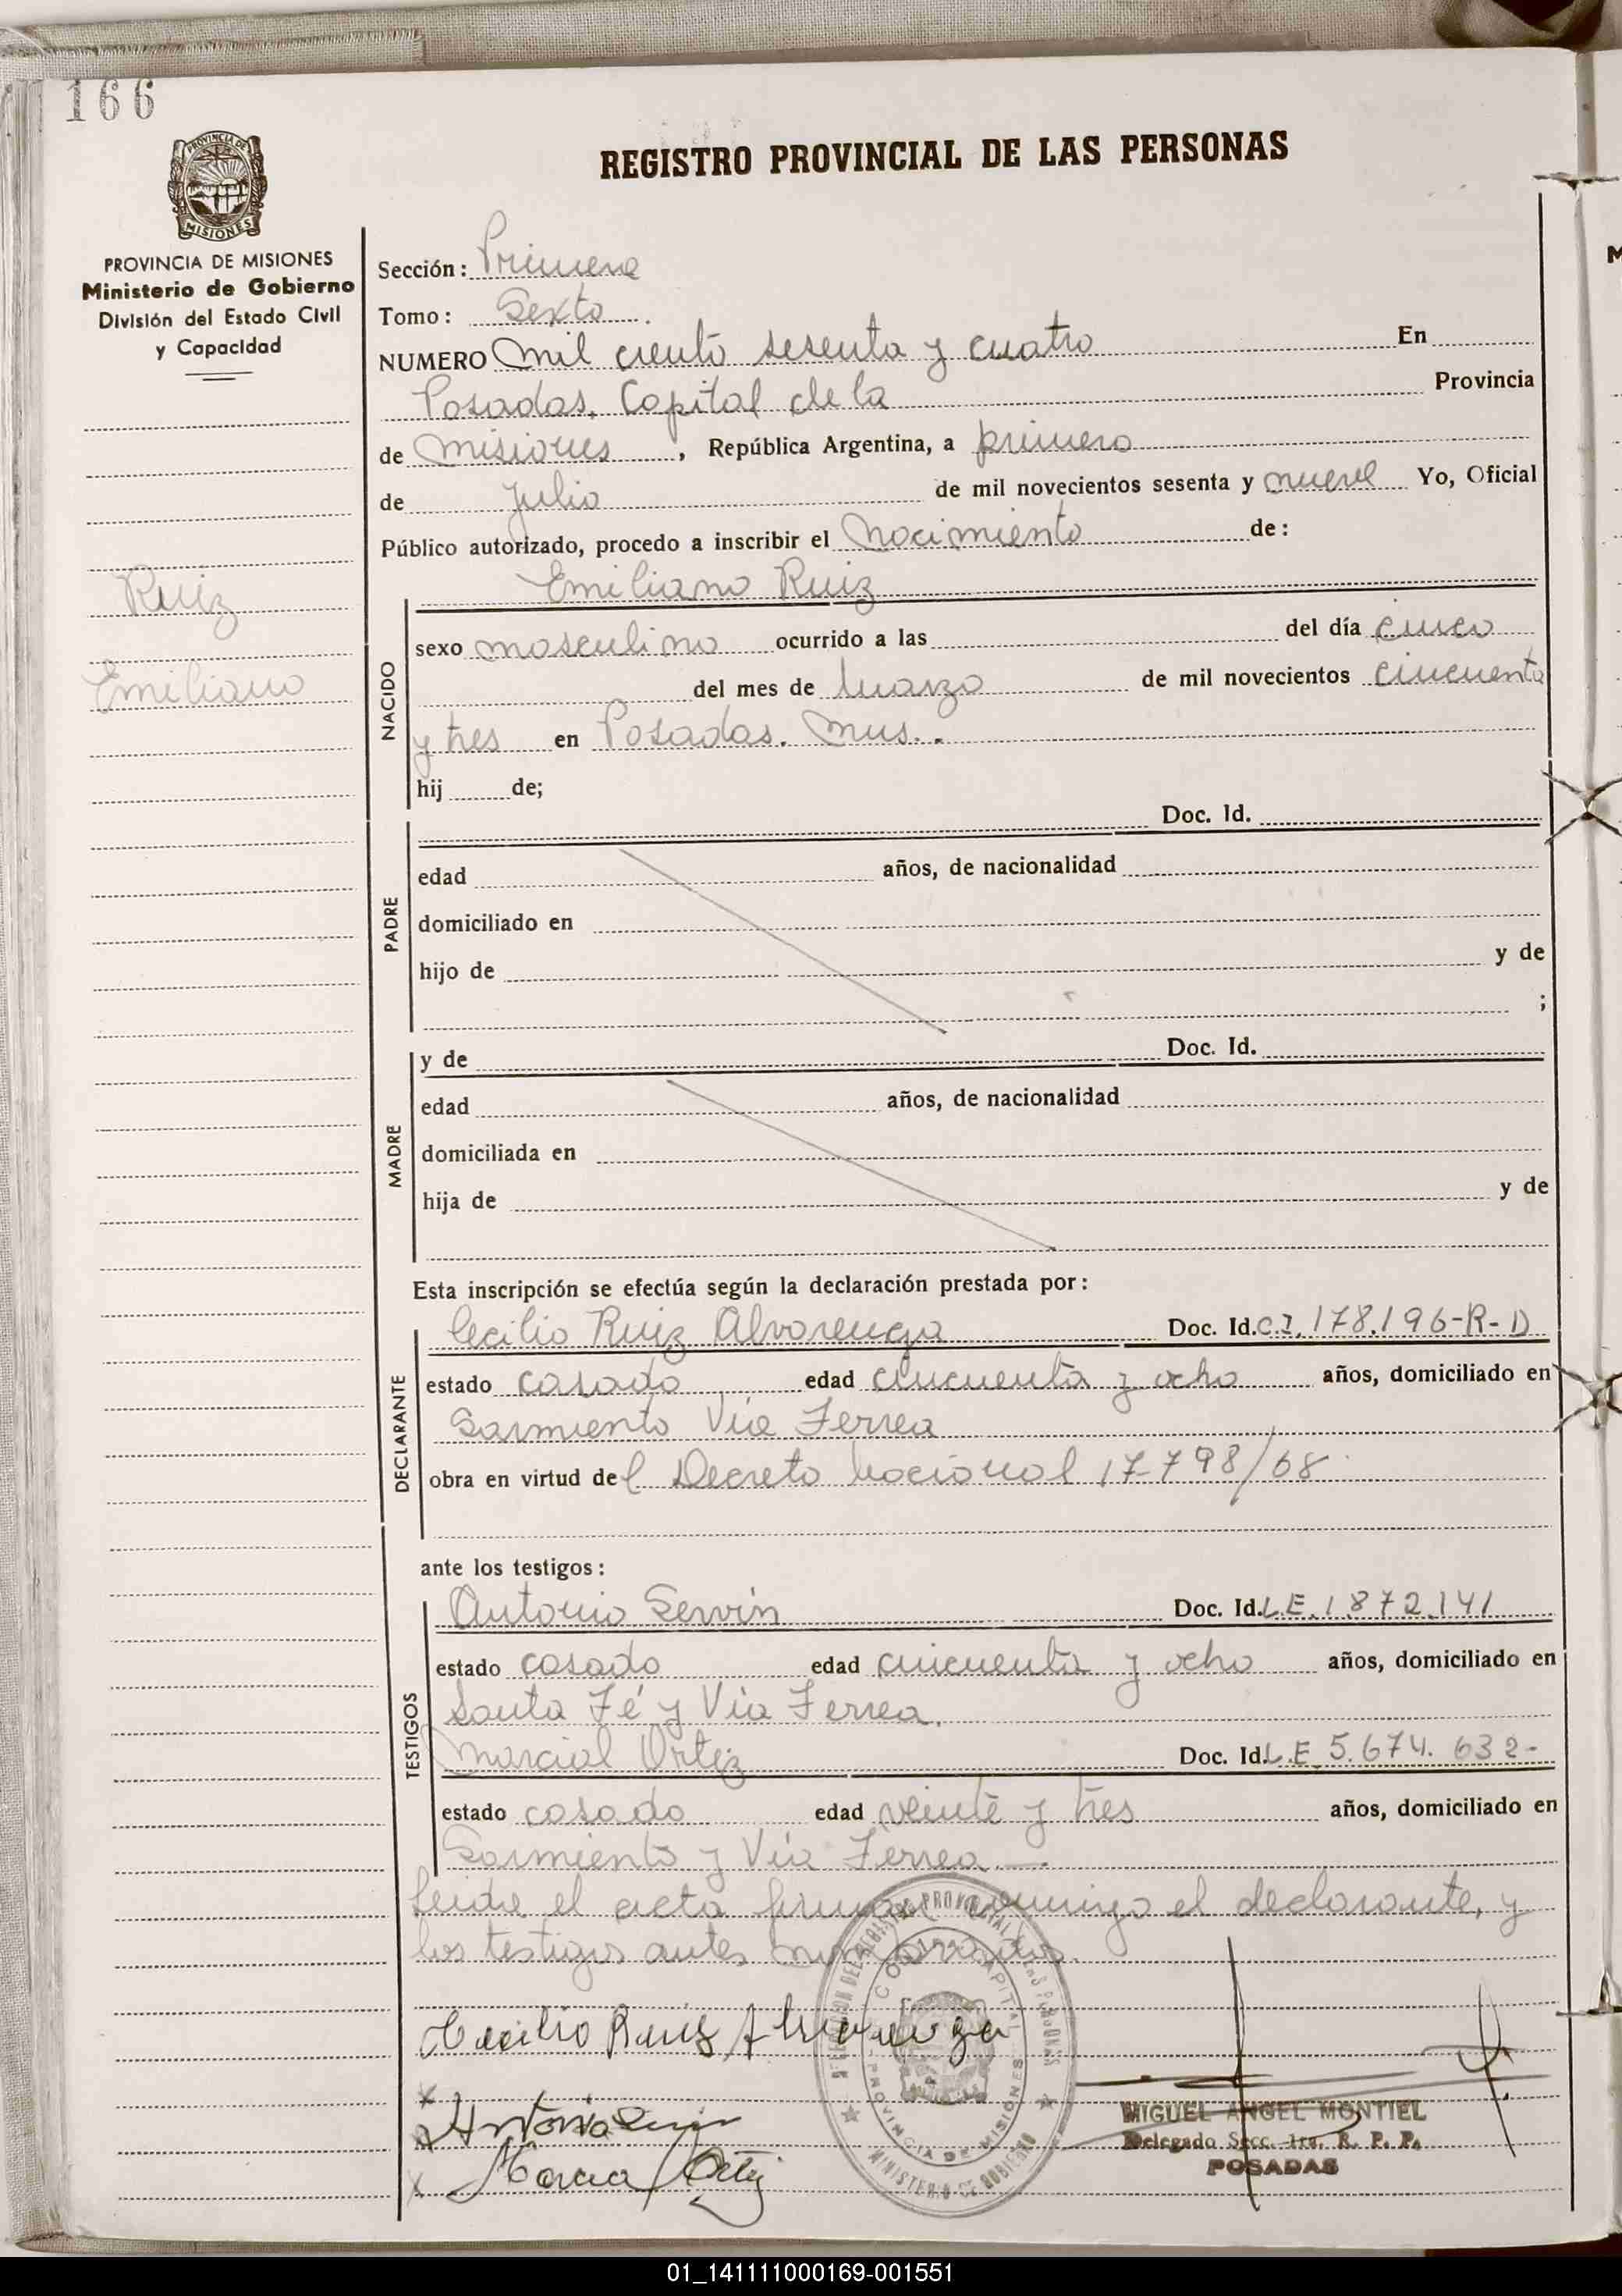 166
PROVINCIA DE MISIONES
REGISTRO PROVINCIAL DE LAS PERSONAS
PROVINCIA DE MISIONES
Ministerio de Gobierno
División del Estado Civil
y Capacidad
Ruiz
Emiliano
Sección: Primera
Tomo: Sexto
NUMERO mil ciento sesenta y cuatro En
Posadas, Capital de la Provincia
de Misiones, República Argentina, a primero
de Julio de mil novecientos sesenta y nueve Yo, Oficial
Público autorizado, procedo a inscribir el Nacimiento de:
Emiliano Ruiz
NACIDO
sexo masculino ocurrido a las del día cinco
del mes de Marzo de mil novecientos cincuenta
y tres en Posadas. Mnes..
hij de;
PADRE
Doc. Id.
edad años, de nacionalidad
domiciliado en
hijo de y de
;
MADRE
y de Doc. Id.
edad años, de nacionalidad
domiciliada en
hija de y de
Esta inscripción se efectúa según la declaración prestada por:
DECLARANTE
Cecilio Ruiz Alvarenga Doc. Id. C.I. 178.196-R-D
estado casado edad cincuenta y ocho años, domiciliado en
Sarmiento Vía Ferrea
obra en virtud del Decreto Nacional 17-798/68
ante los testigos:
TESTIGOS
Antonio Servín Doc. Id. L.E. 1.872.141
estado casado edad cincuenta y ocho años, domiciliado en
Santa Fé y Vía Ferrea.
Marcial Ortiz Doc. Id. L.E. 5.674.632-
estado casado edad veinte y tres años, domiciliado en
Sarmiento y Vía Ferrea.—
Leída el acta firman conmigo el declarante, y
los testigos antes nombrados.
Cecilio Ruiz Alvarenga
Marcial Ortiz
MINISTERIO DE GOBIERNO
PROVINCIA DE MISIONES
MIGUEL ANGEL MONTIEL
Delegado Secc. 1ra. R. P. P.
POSADAS
01_141111000169-001551